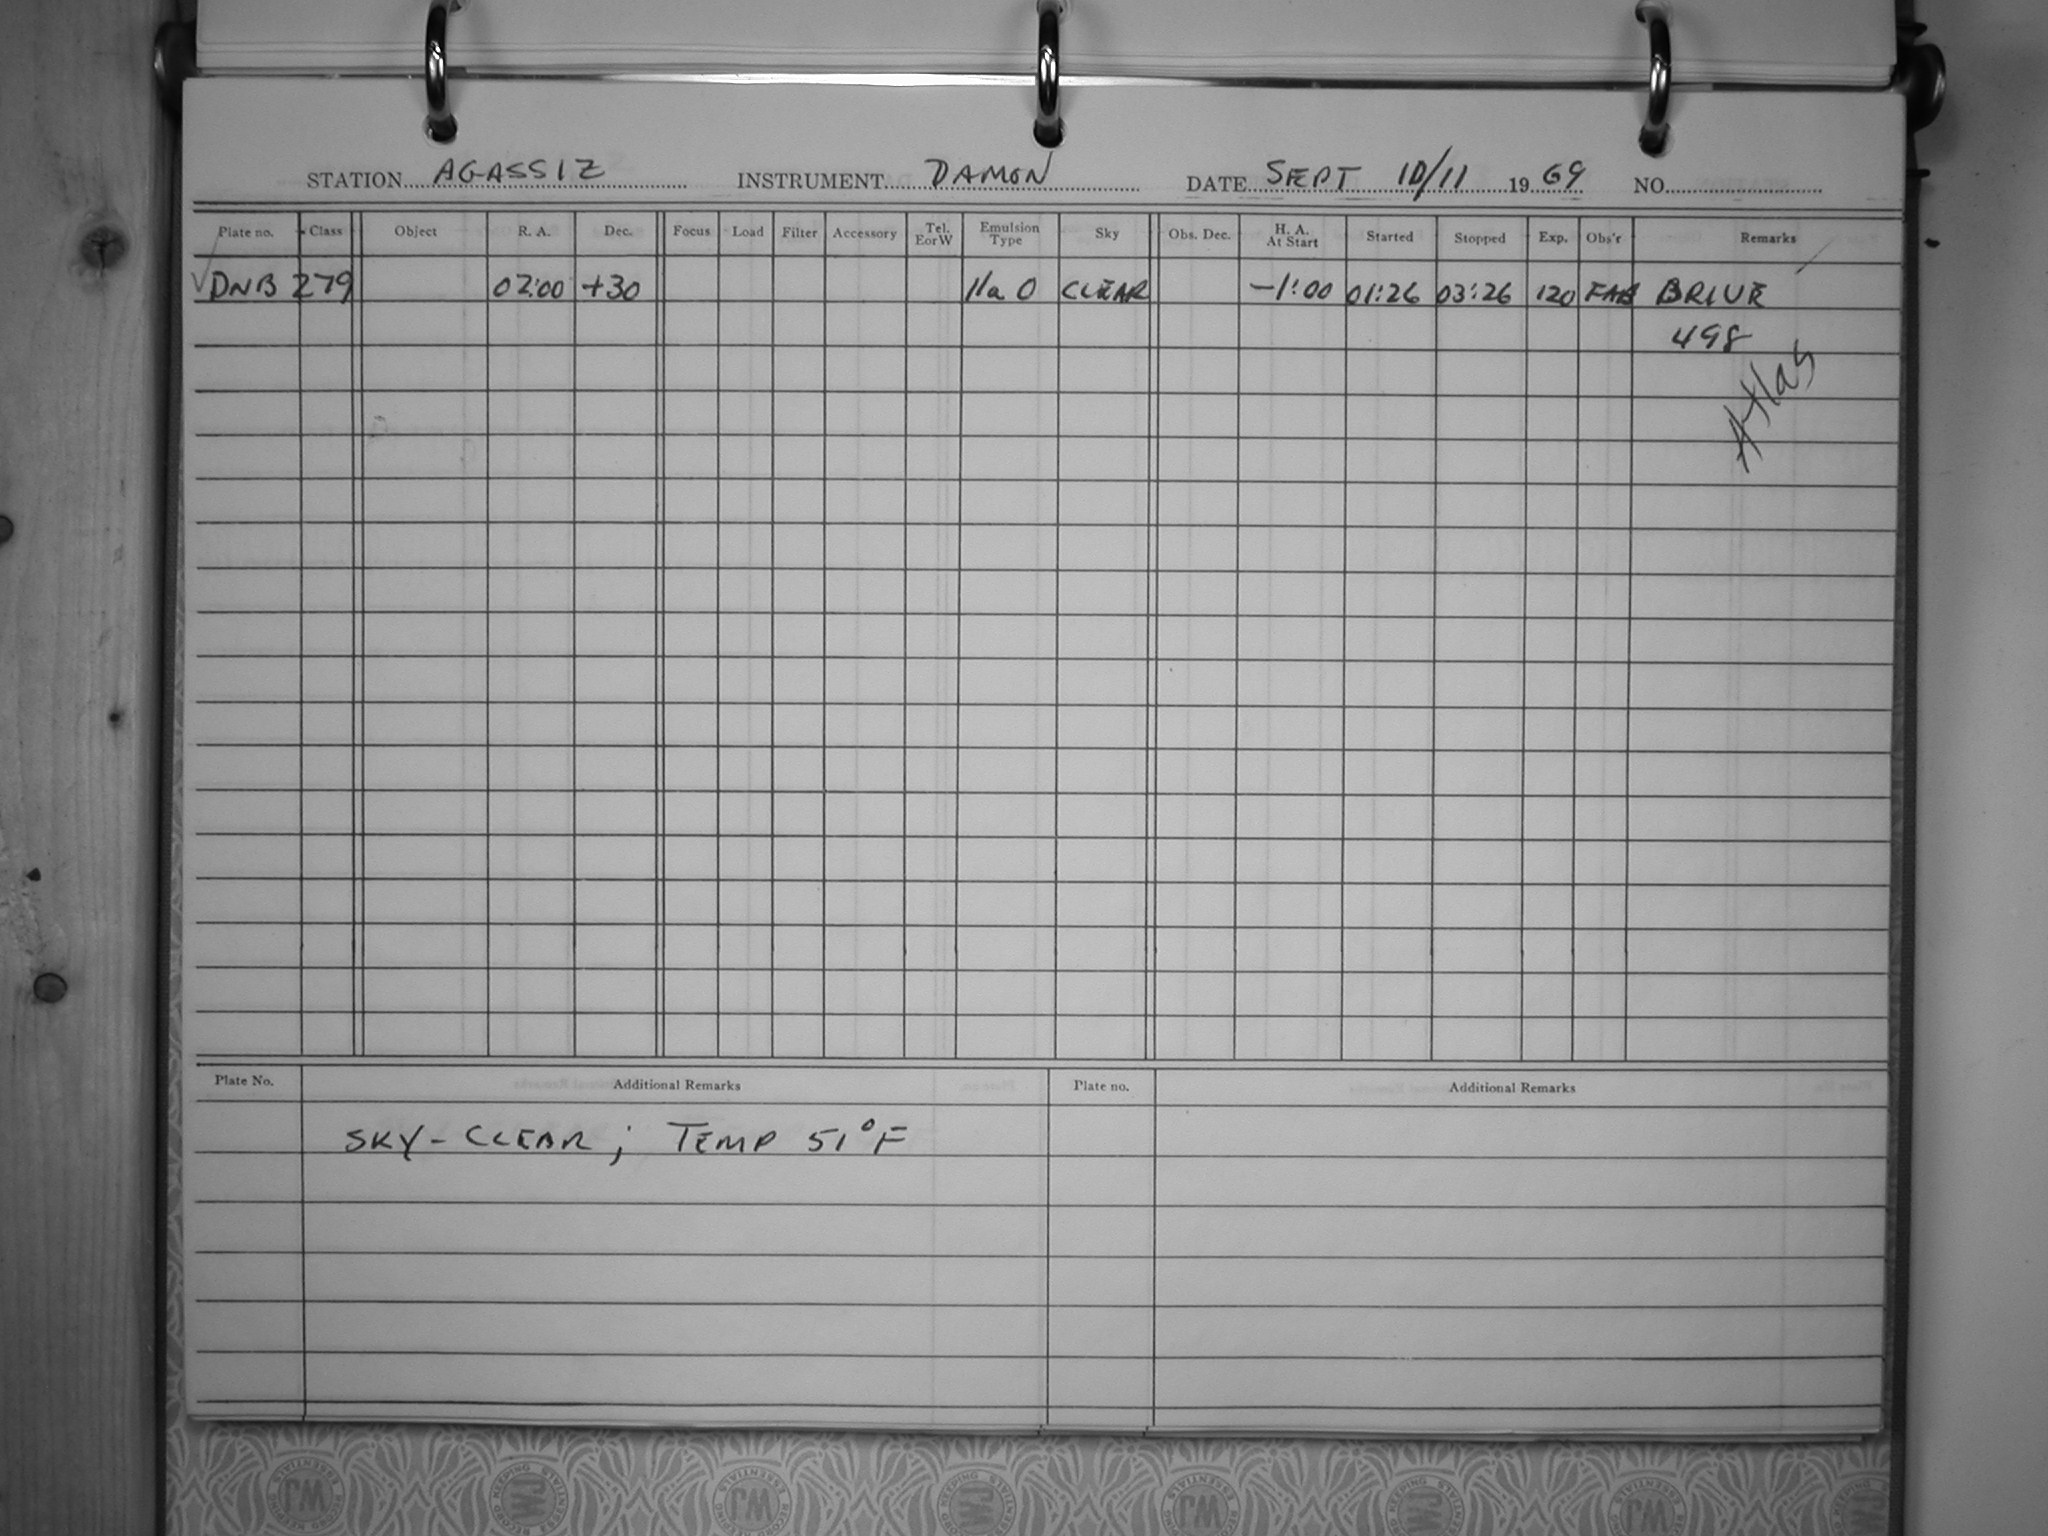 STATION AGASSIZ INSTRUMENT DAMON DATE SEPT 10/11 1969 NO.
Plate no. Class Object R. A. Dec. Focus Load Filter Accessory Tel. EorW Emulsion Type Sky Obs. Dec. H. A. At Start Started Stopped Exp. Obs'r Remarks
DNB 279 02:00 +30 IIa O CLEAR -1:00 01:26 03:26 120 FAB
498
Atlas
Plate No. Additional Remarks Plate no. Additional Remarks
SKY-CLEAR; TEMP 51°F